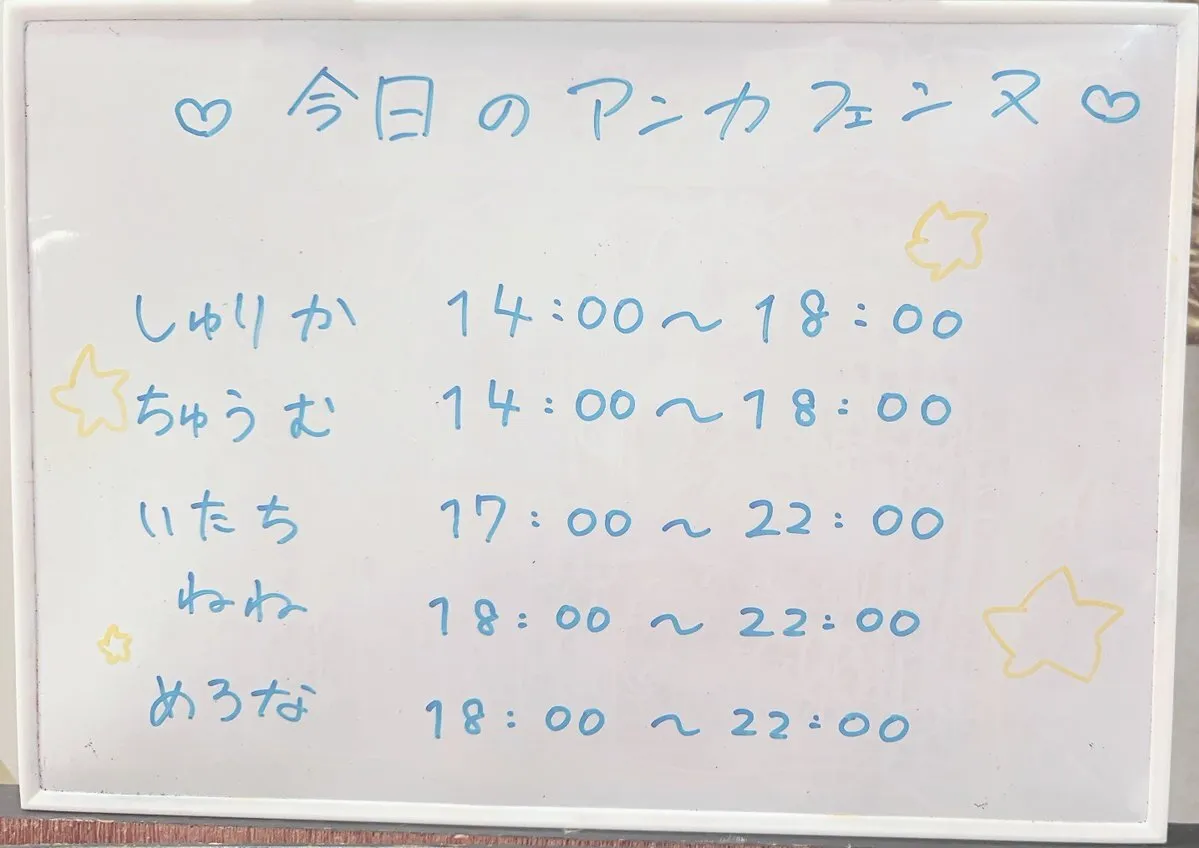 ♡ 今日のアンカフェンヌ ♡
しゅりか 14:00～18:00
ちゅうむ 14:00～18:00
いたち 17:00～22:00
ねね 18:00～22:00
めろな 18:00～22:00